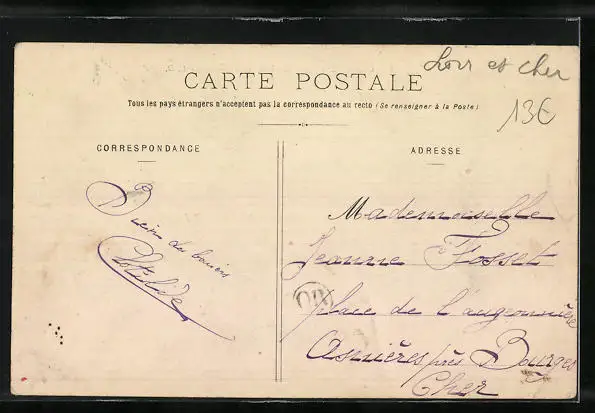 Loir et cher
CARTE POSTALE
Tous les pays étrangers n'acceptent pas la correspondance au recto (Se renseigner à la Poste)
13€
CORRESPONDANCE
ADRESSE
des baisers
Clotilde
Mademoiselle
Jeanne Fosset
OR
place de l'augeonnière
Asnières près Bourges
Cher